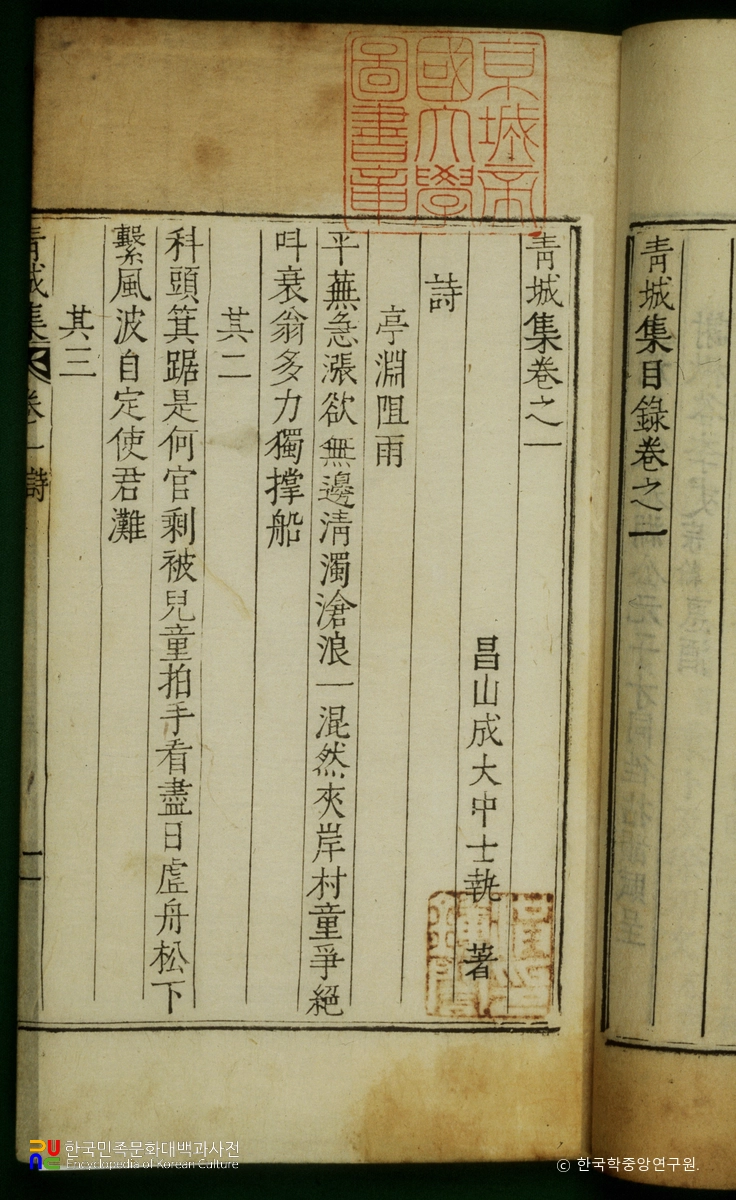 靑城集目錄卷之一
京城帝
國大學
圖書章
靑城集卷之一
昌山成大中士執 著
詩
亭淵阻雨
平蕪急漲欲無邊淸濁滄浪一混然夾岸村童爭絕
叫衰翁多力獨撑船
其二
科頭箕踞是何官剩被兒童拍手看盡日虛舟松下
繫風波自定使君灘
其三
靑城集 卷之一 詩
一
한국민족문화대백과사전
Encyclopedia of Korean Culture
© 한국학중앙연구원.